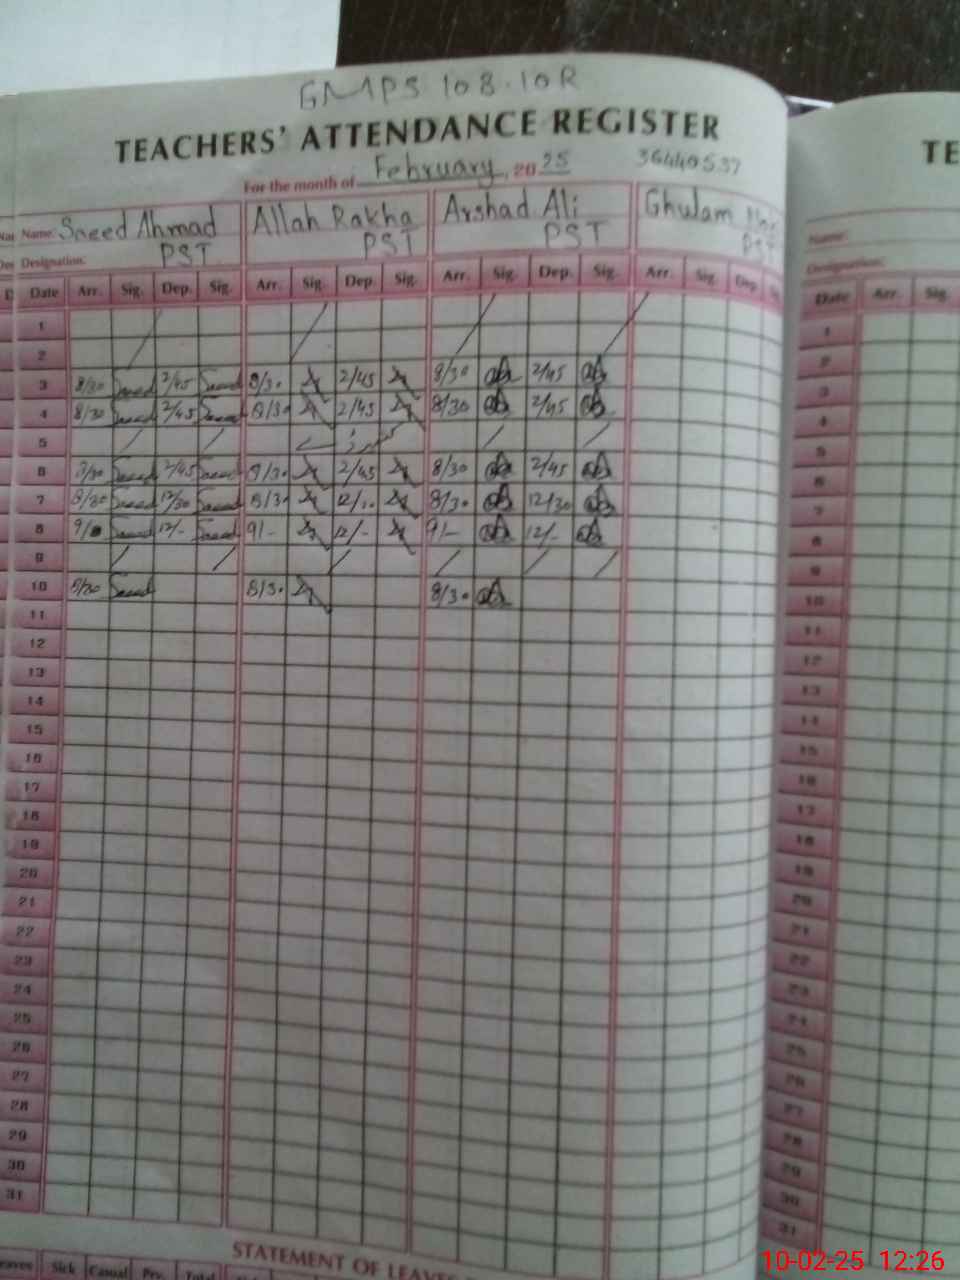 GMPS 108-10R
TEACHERS' ATTENDANCE REGISTER TE
For the month of February, 2025 36440537
Name: Saeed Ahmad Allah Rakha Arshad Ali Ghulam Name:
Designation: PST PST PST PST Designation:
Date Arr. Sig. Dep. Sig. Arr. Sig. Dep. Sig. Arr. Sig. Dep. Sig. Arr. Sig. Dep. Date Arr. Sig.
1 1
2 2
3 8/30 Saeed 2/45 Saeed 8/30 2/45 8/30 2/45 3
4 8/30 Saeed 2/45 Saeed 8/30 2/45 8/30 2/45 4
5 5
6 8/30 Saeed 2/45 Saeed 8/30 2/45 8/30 2/45 6
7 8/30 Saeed 12/30 Saeed 8/30 12/30 8/30 12/30 7
8 9/ Saeed 12/- Saeed 9/- 12/- 9/- 12/- 8
9 9
10 8/30 Saeed 8/30 8/30 10
11 11
12 12
13 13
14 14
15 15
16 16
17 17
18 18
19 19
20 20
21 21
22 22
23 23
24 24
25 25
26 26
27 27
28 28
29 29
30 30
31 31
STATEMENT OF LEAVES
Leaves Sick Casual Prv. Total
10-02-25 12:26